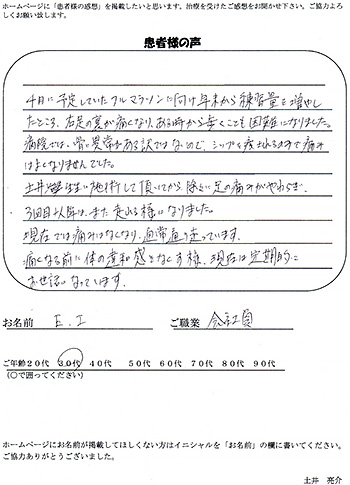 ホームページに「患者様の感想」を掲載したいと思います。治療を受けたご感想をお聞かせ下さい。ご協力よろ
しくお願い致します。
患者様の声
4月に予定していたフルマラソンに向け年末から練習量を増やし
たところ、右足の裏が痛くなり、ある時から歩くことも困難になりました。
病院では、骨に異常がある訳ではないので、シップを処方されるのみで痛み
はよくなりませんでした。
土井先生に施術して頂いてから除々に足の痛みがやわらぎ、
3回目以降は、また走れる様になりました。
現在では痛みはなくなり、通常通り走っています。
痛くなる前に体の違和感をなくす様、現在は定期的に
お世話になっています。
お名前 E.I ご職業 会社員
ご年齢 20代 30代 40代 50代 60代 70代 80代 90代
(〇で囲ってください)
ホームページにお名前が掲載してほしくない方はイニシャルを「お名前」の欄に書いてください。
ご協力ありがとうございました。
土井 亮介